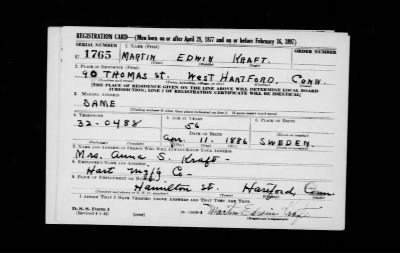 REGISTRATION CARD—(Men born on or after April 28, 1877 and on or before February 16, 1897)
SERIAL NUMBER 1. NAME (Print) ORDER NUMBER
U 1765 MARTIN EDWIN KRAFT.
(First) (Middle) (Last)
2. PLACE OF RESIDENCE (Print)
90 THOMAS ST. WEST HARTFORD, CONN.
(Number and street) (Town, township, village, or city) (County) (State)
[THE PLACE OF RESIDENCE GIVEN ON THE LINE ABOVE WILL DETERMINE LOCAL BOARD
JURISDICTION; LINE 2 OF REGISTRATION CERTIFICATE WILL BE IDENTICAL]
3. MAILING ADDRESS
SAME
[Mailing address if other than place indicated on line 2. If same insert word same]
4. TELEPHONE 5. AGE IN YEARS 6. PLACE OF BIRTH
32-0488 56
DATE OF BIRTH
Apr. 11. 1886 SWEDEN.
7. NAME AND ADDRESS OF PERSON WHO WILL ALWAYS KNOW YOUR ADDRESS
Mrs. Anna S. Kraft -
8. EMPLOYER'S NAME AND ADDRESS
Hart Mfg Co -
9. PLACE OF EMPLOYMENT OR BUSINESS
Hamilton St. Hartford Conn.
(Number and street or R. F. D. number) (Town) (County) (State)
I AFFIRM THAT I HAVE VERIFIED ABOVE ANSWERS AND THAT THEY ARE TRUE.
D. S. S. Form 1
(Revised 4-1-42) (over) Martin Edwin Kraft
(Registrant's signature)